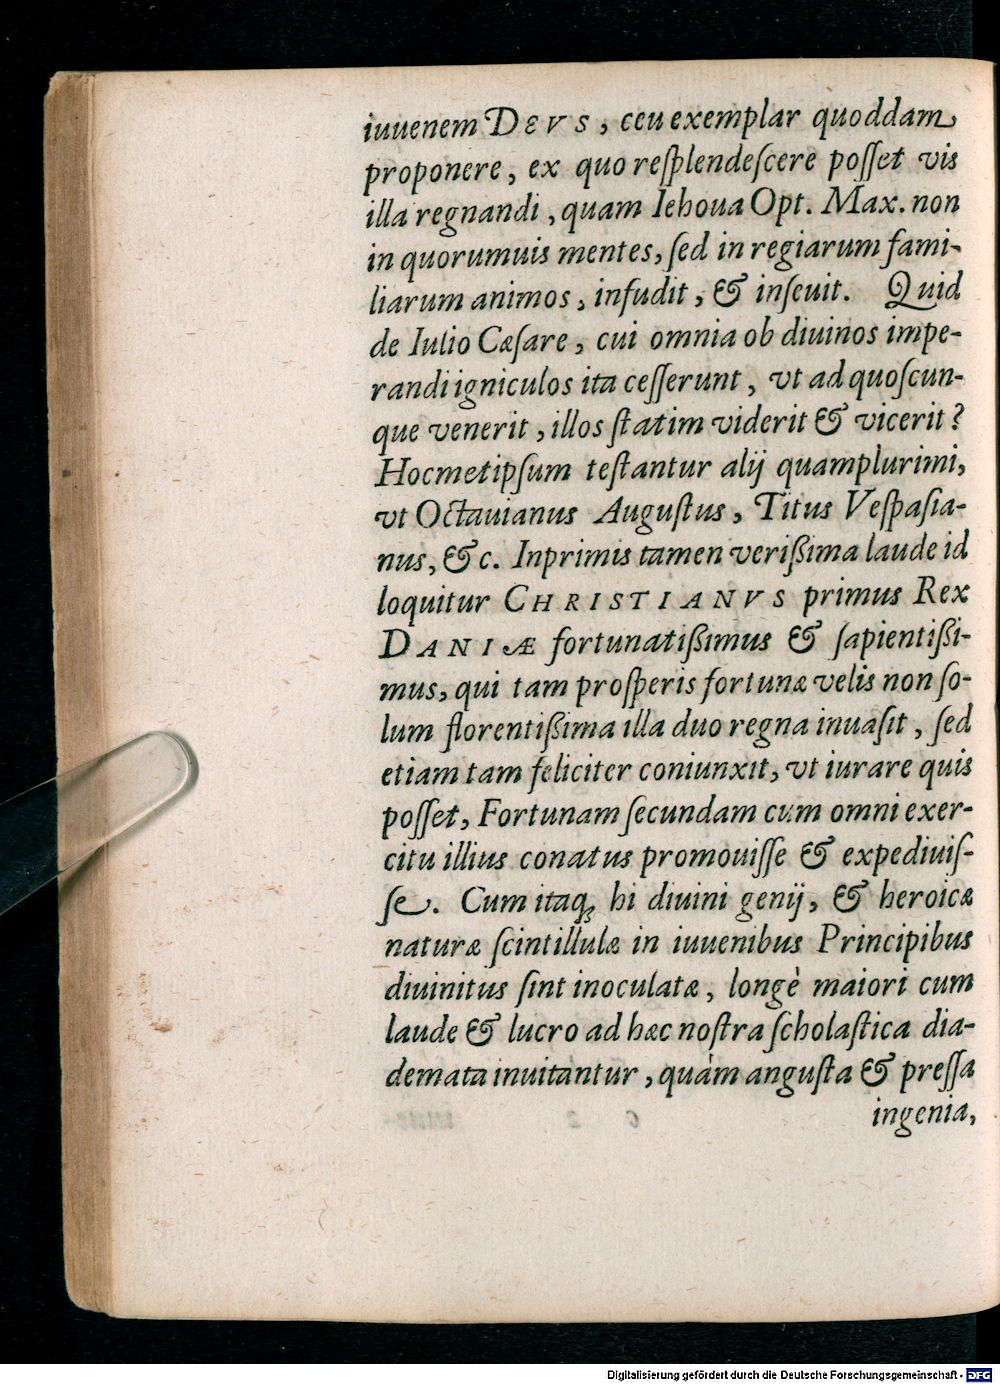 iuuenem DEVS, ceu exemplar quoddam
proponere, ex quo resplendescere posset vis
illa regnandi, quam Iehoua Opt. Max. non
in quorumuis mentes, sed in regiarum fami-
liarum animos, infudit, & inseuit. Quid
de Iulio Cæsare, cui omnia ob diuinos impe-
randi igniculos ita cesserunt, vt ad quoscun-
que venerit, illos statim viderit & vicerit?
Hocmetipsum testantur alij quamplurimi,
vt Octauianus Augustus, Titus Vespasia-
nus, &c. Inprimis tamen verißima laude id
loquitur CHRISTIANVS primus Rex
DANIÆ fortunatißimus & sapientißi-
mus, qui tam prosperis fortunæ velis non so-
lum florentißima illa duo regna inuasit, sed
etiam tam feliciter coniunxit, vt iurare quis
posset, Fortunam secundam cum omni exer-
citu illius conatus promouisse & expediuis-
se. Cum itaq; hi diuini genij, & heroicæ
naturæ scintillulæ in iuuenibus Principibus
diuinitus sint inoculatæ, longè maiori cum
laude & lucro ad hæc nostra scholastica dia-
demata inuitantur, quàm angusta & pressa
ingenia,
Digitalisierung gefördert durch die Deutsche Forschungsgemeinschaft - DFG